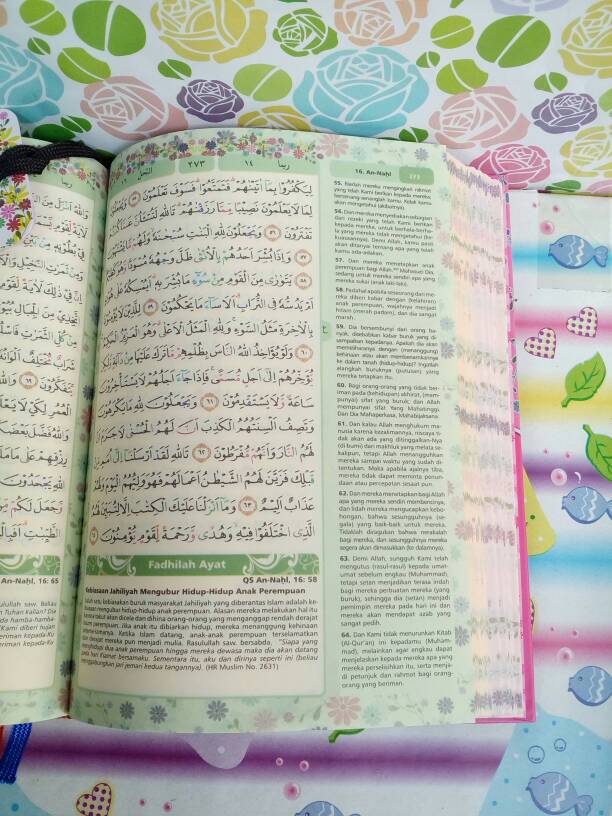 النحل ١٦
٢٧٣
ربما ١٤
لِيَكْفُرُوْا بِمَآ اٰتَيْنٰهُمْ فَتَمَتَّعُوْا فَسَوْفَ تَعْلَمُوْنَ
لِمَا لَا يَعْلَمُوْنَ نَصِيْبًا مِّمَّا رَزَقْنٰهُمْ تَاللّٰهِ لَتُسْـَٔلُنَّ عَمَّا كُنْتُمْ
تَفْتَرُوْنَ ٥٦ وَيَجْعَلُوْنَ لِلّٰهِ الْبَنٰتِ سُبْحٰنَهٗ وَلَهُمْ مَّا يَشْتَهُوْنَ
٥٧ وَاِذَا بُشِّرَ اَحَدُهُمْ بِالْاُنْثٰى ظَلَّ وَجْهُهٗ مُسْوَدًّا وَّهُوَ كَظِيْمٌ
٥٨ يَتَوَارٰى مِنَ الْقَوْمِ مِنْ سُوْۤءِ مَا بُشِّرَ بِهٖ اَيُمْسِكُهٗ عَلٰى هُوْنٍ
اَمْ يَدُسُّهٗ فِى التُّرَابِ اَلَا سَاۤءَ مَا يَحْكُمُوْنَ ٥٩ لِلَّذِيْنَ لَا يُؤْمِنُوْنَ
بِالْاٰخِرَةِ مَثَلُ السَّوْءِ وَلِلّٰهِ الْمَثَلُ الْاَعْلٰى وَهُوَ الْعَزِيْزُ الْحَكِيْمُ
٦٠ وَلَوْ يُؤَاخِذُ اللّٰهُ النَّاسَ بِظُلْمِهِمْ مَّا تَرَكَ عَلَيْهَا مِنْ دَاۤبَّةٍ وَّلٰكِنْ
يُّؤَخِّرُهُمْ اِلٰٓى اَجَلٍ مُّسَمًّى فَاِذَا جَاۤءَ اَجَلُهُمْ لَا يَسْتَأْخِرُوْنَ
سَاعَةً وَّلَا يَسْتَقْدِمُوْنَ ٦١ وَيَجْعَلُوْنَ لِلّٰهِ مَا يَكْرَهُوْنَ
وَتَصِفُ اَلْسِنَتُهُمُ الْكَذِبَ اَنَّ لَهُمُ الْحُسْنٰى لَا جَرَمَ اَنَّ
لَهُمُ النَّارَ وَاَنَّهُمْ مُّفْرَطُوْنَ ٦٢ تَاللّٰهِ لَقَدْ اَرْسَلْنَآ اِلٰٓى اُمَمٍ مِّنْ
قَبْلِكَ فَزَيَّنَ لَهُمُ الشَّيْطٰنُ اَعْمَالَهُمْ فَهُوَ وَلِيُّهُمُ الْيَوْمَ وَلَهُمْ
عَذَابٌ اَلِيْمٌ ٦٣ وَمَآ اَنْزَلْنَا عَلَيْكَ الْكِتٰبَ اِلَّا لِتُبَيِّنَ لَهُمُ
الَّذِى اخْتَلَفُوْا فِيْهِ وَهُدًى وَّرَحْمَةً لِّقَوْمٍ يُّؤْمِنُوْنَ ٦٤
Fadhilah Ayat
QS An-Naḥl, 16: 58
Kebiasaan Jahiliyah Mengubur Hidup-Hidup Anak Perempuan
kebiasaan buruk masyarakat Jahiliyah yang diberantas Islam adalah ke-
mengubur hidup-hidup anak perempuan. Alasan mereka melakukan hal itu
takut akan dicela dan dihina orang-orang yang menganggap rendah derajat
kaum perempuan. Jika anak itu dibiarkan hidup, mereka menanggung kehinaan
Ketika Islam datang, anak-anak perempuan terselamatkan
dan derajat mereka pun menjadi mulia. Rasulullah saw. bersabda, "Siapa yang
menghidupi dua anak perempuan hingga mereka dewasa maka dia akan datang
pada hari Kiamat bersamaku. Sementara itu, aku dan dirinya seperti ini (beliau
menggabungkan jari jemari kedua tangannya). (HR Muslim No. 2631)
16. An-Naḥl
273
55. Biarlah mereka mengingkari rahmat
yang telah Kami berikan kepada mereka;
bersenang-senanglah kamu. Kelak kamu
akan mengetahui (akibatnya).
56. Dan mereka menyediakan sebagian
dari rezeki yang telah Kami berikan
kepada mereka, untuk berhala-berha-
la yang mereka tidak mengetahui (ke-
kuasaannya). Demi Allah, kamu pasti
akan ditanyai tentang apa yang telah
kamu ada-adakan.
57. Dan mereka menetapkan anak
perempuan bagi Allah. Mahasuci Dia,
sedang untuk mereka sendiri apa yang
mereka sukai (anak laki-laki).
58. Padahal apabila seseorang dari me-
reka diberi kabar dengan (kelahiran)
anak perempuan, wajahnya menjadi
hitam (merah padam), dan dia sangat
marah.
59. Dia bersembunyi dari orang ba-
nyak, disebabkan kabar buruk yang di-
sampaikan kepadanya. Apakah dia akan
memeliharanya dengan (menanggung)
kehinaan atau akan membenamkannya
ke dalam tanah (hidup-hidup)? Ingatlah
alangkah buruknya (putusan) yang
mereka tetapkan itu.
60. Bagi orang-orang yang tidak ber-
iman pada (kehidupan) akhirat, (mem-
punyai) sifat yang buruk; dan Allah
mempunyai sifat Yang Mahatinggi.
Dan Dia Mahaperkasa, Mahabijaksana.
61. Dan kalau Allah menghukum ma-
nusia karena kezalimannya, niscaya ti-
dak akan ada yang ditinggalkan-Nya
(di bumi) dari makhluk yang melata se-
kalipun, tetapi Allah menangguhkan
mereka sampai waktu yang sudah di-
tentukan. Maka apabila ajalnya tiba,
mereka tidak dapat meminta penun-
daan atau percepatan sesaat pun.
62. Dan mereka menetapkan bagi Allah
apa yang mereka sendiri membencinya,
dan lidah mereka mengucapkan kebo-
hongan, bahwa sesungguhnya (se-
gala) yang baik-baik untuk mereka.
Tidaklah diragukan bahwa nerakalah
bagi mereka, dan sesungguhnya mereka
segera akan dimasukkan (ke dalamnya).
63. Demi Allah, sungguh Kami telah
mengutus (rasul-rasul) kepada umat-
umat sebelum engkau (Muhammad),
tetapi setan menjadikan terasa indah
bagi mereka perbuatan mereka (yang
buruk), sehingga dia (setan) menjadi
pemimpin mereka pada hari ini dan
mereka akan mendapat azab yang
sangat pedih.
64. Dan Kami tidak menurunkan Kitab
(Al-Qur'an) ini kepadamu (Muham-
mad), melainkan agar engkau dapat
menjelaskan kepada mereka apa yang
mereka perselisihkan itu, serta menja-
di petunjuk dan rahmat bagi orang-
orang yang beriman.
An-Naḥl, 16: 65